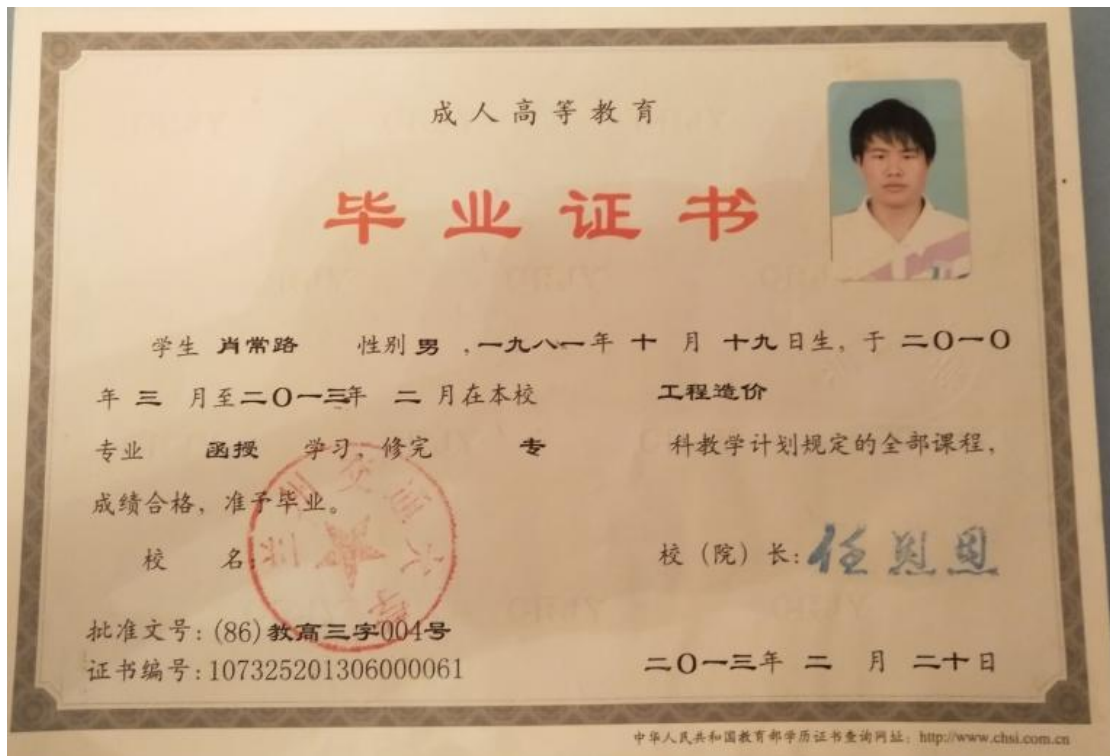 成人高等教育
毕业证书
学生 肖常路 性别 男 ,一九八一年 十 月 十九日生, 于 二〇一〇
年 三 月至二〇一三年 二 月在本校 工程造价
专业 函授 学习, 修完 专 科教学计划规定的全部课程,
成绩合格, 准予毕业。
校 名:
校 (院) 长:
批准文号: (86)教高三字004号
证书编号:107325201306000061
二〇一三年 二 月 二十日
中华人民共和国教育部学历证书查询网址: http://www.chsi.com.cn